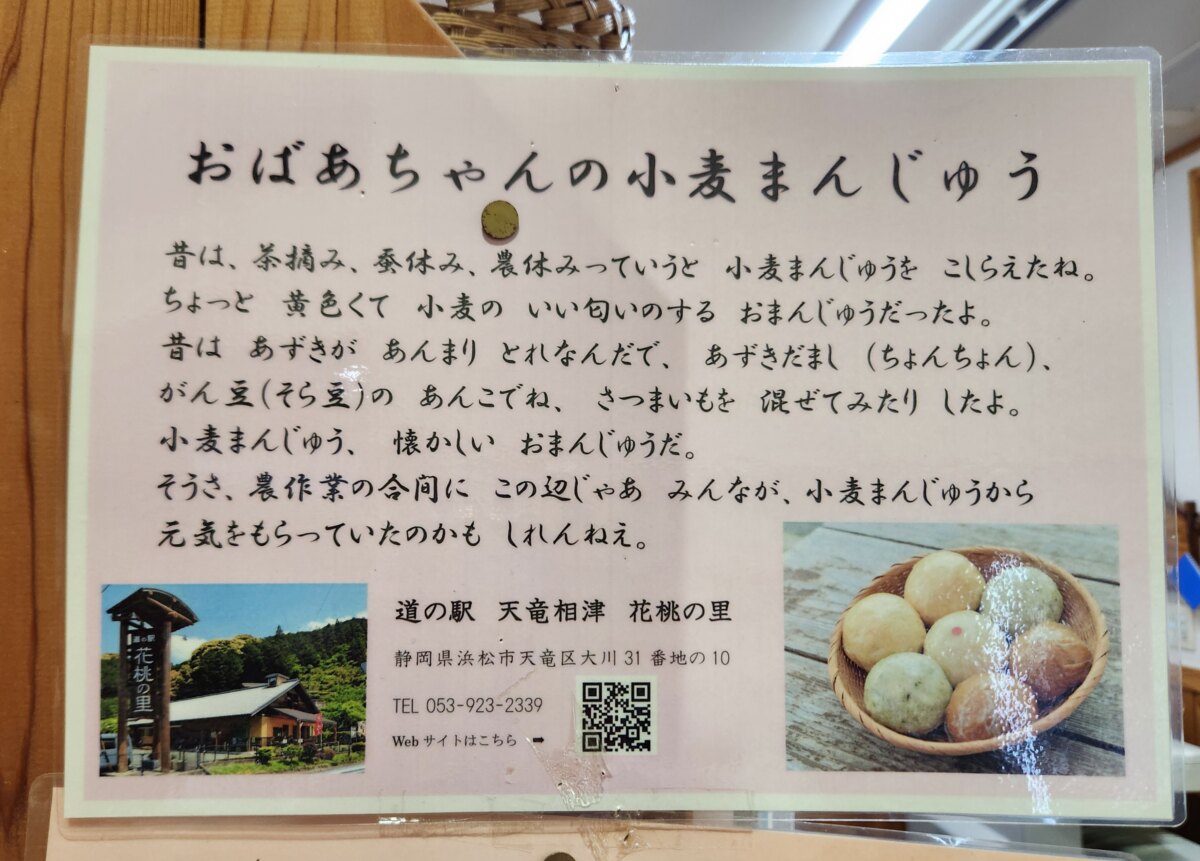 おばあちゃんの小麦まんじゅう
昔は、茶摘み、蚕休み、農休みっていうと 小麦まんじゅうを こしらえたね。
ちょっと 黄色くて 小麦の いい匂いのする おまんじゅうだったよ。
昔は あずきが あんまり とれなんだで、 あずきだまし (ちょんちょん)、
がん豆(そら豆)の あんこでね、 さつまいもを 混ぜてみたり したよ。
小麦まんじゅう、 懐かしい おまんじゅうだ。
そうさ、農作業の合間に この辺じゃあ みんなが、小麦まんじゅうから
元気をもらっていたのかも しれんねえ。
道の駅 天竜相津 花桃の里
静岡県浜松市天竜区大川 31 番地の 10
TEL 053-923-2339
Web サイトはこちら ➡
道の駅
花桃の里